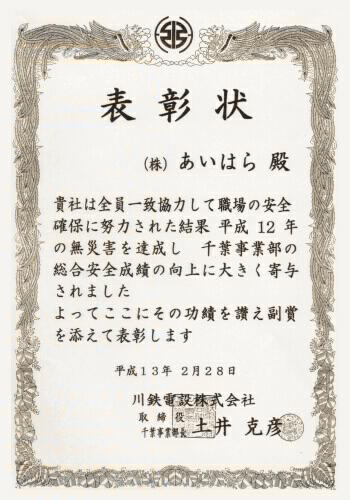 表彰状
(株) あいはら 殿
貴社は全員一致協力して職場の安全
確保に努力された結果 平成 12 年
の無災害を達成し 千葉事業部の
総合安全成績の向上に大きく寄与
されました
よってここにその功績を讃え副賞
を添えて表彰します
平成13年 2月28日
川鉄電設株式会社
取締役
千葉事業部長 土井 克彦